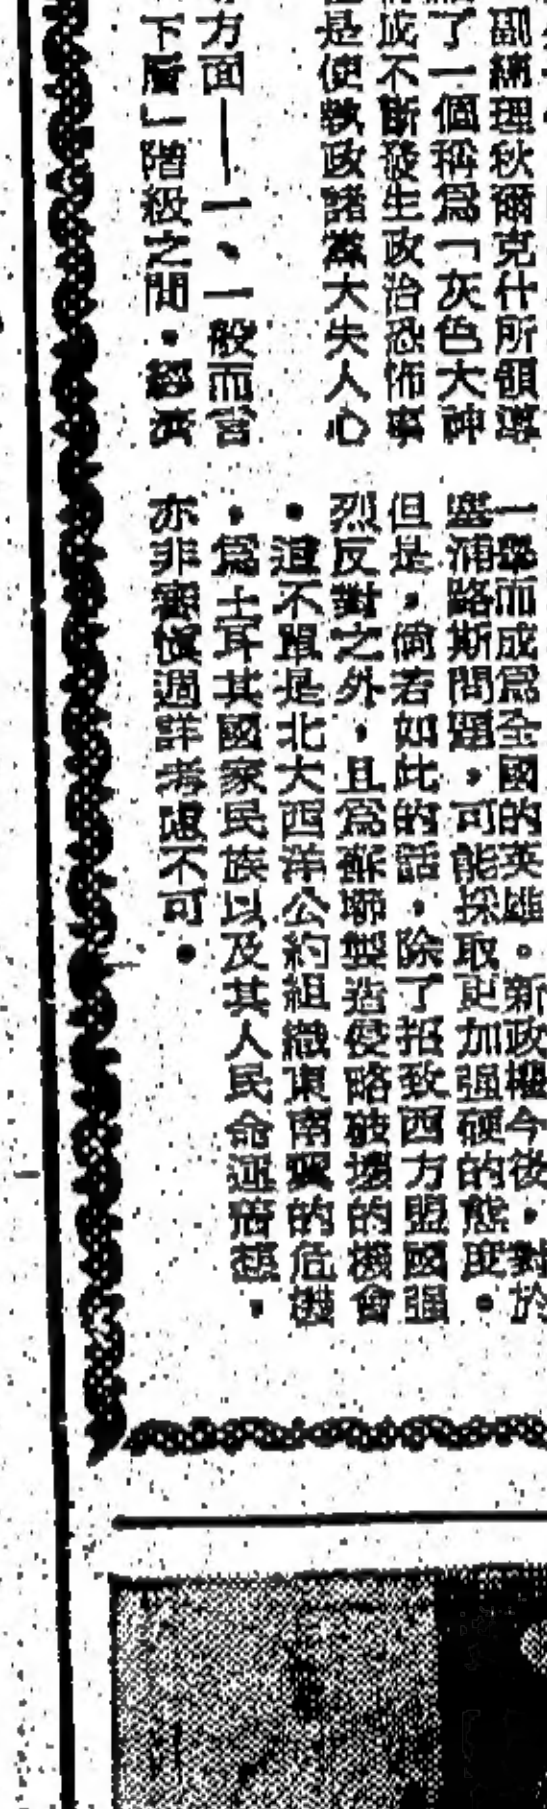 副總理秋爾克什所領導
了一個稱爲「灰色大神
成不斷發生政治恐怖事
是使執政諸黨大失人心
方面——一、一般而言
下層」階級之間，經濟
一舉而成爲全國的英雄。新政權今後，對於
塞浦路斯問題，可能採取更加强硬的態度。
但是，倘若如此的話，除了招致西方盟國强
烈反對之外，且爲蘇聯製造侵略破壞的機會
。這不單是北大西洋公約組織東南翼的危機
，爲土耳其國家民族以及其人民命運着想，
亦非審慎週詳考慮不可。